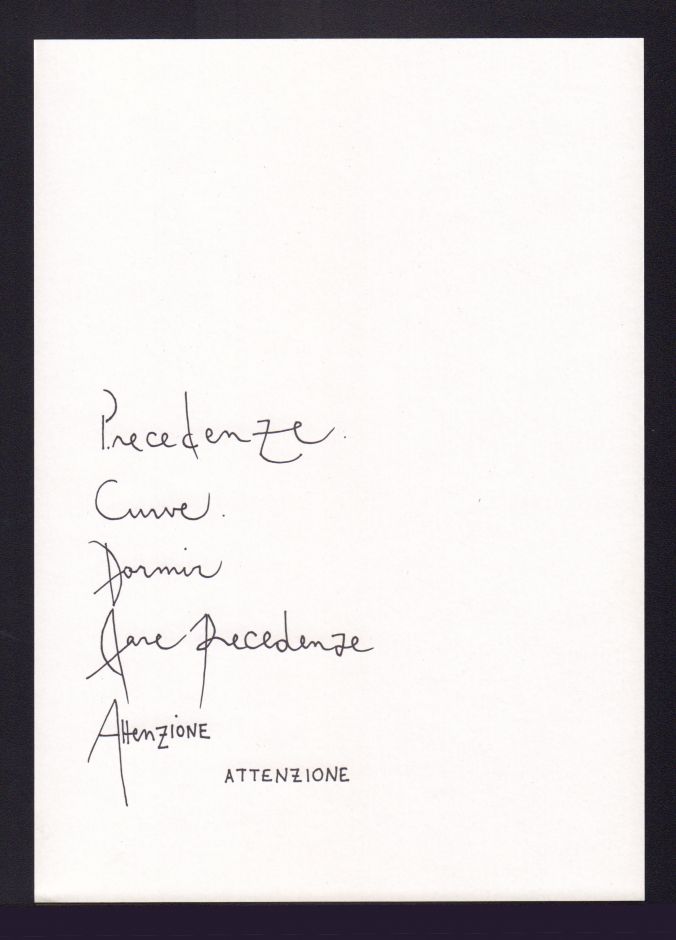 Precedenze.
Curve.
Dormir
Dare precedenze
AttenZiONE
ATTENZIONE